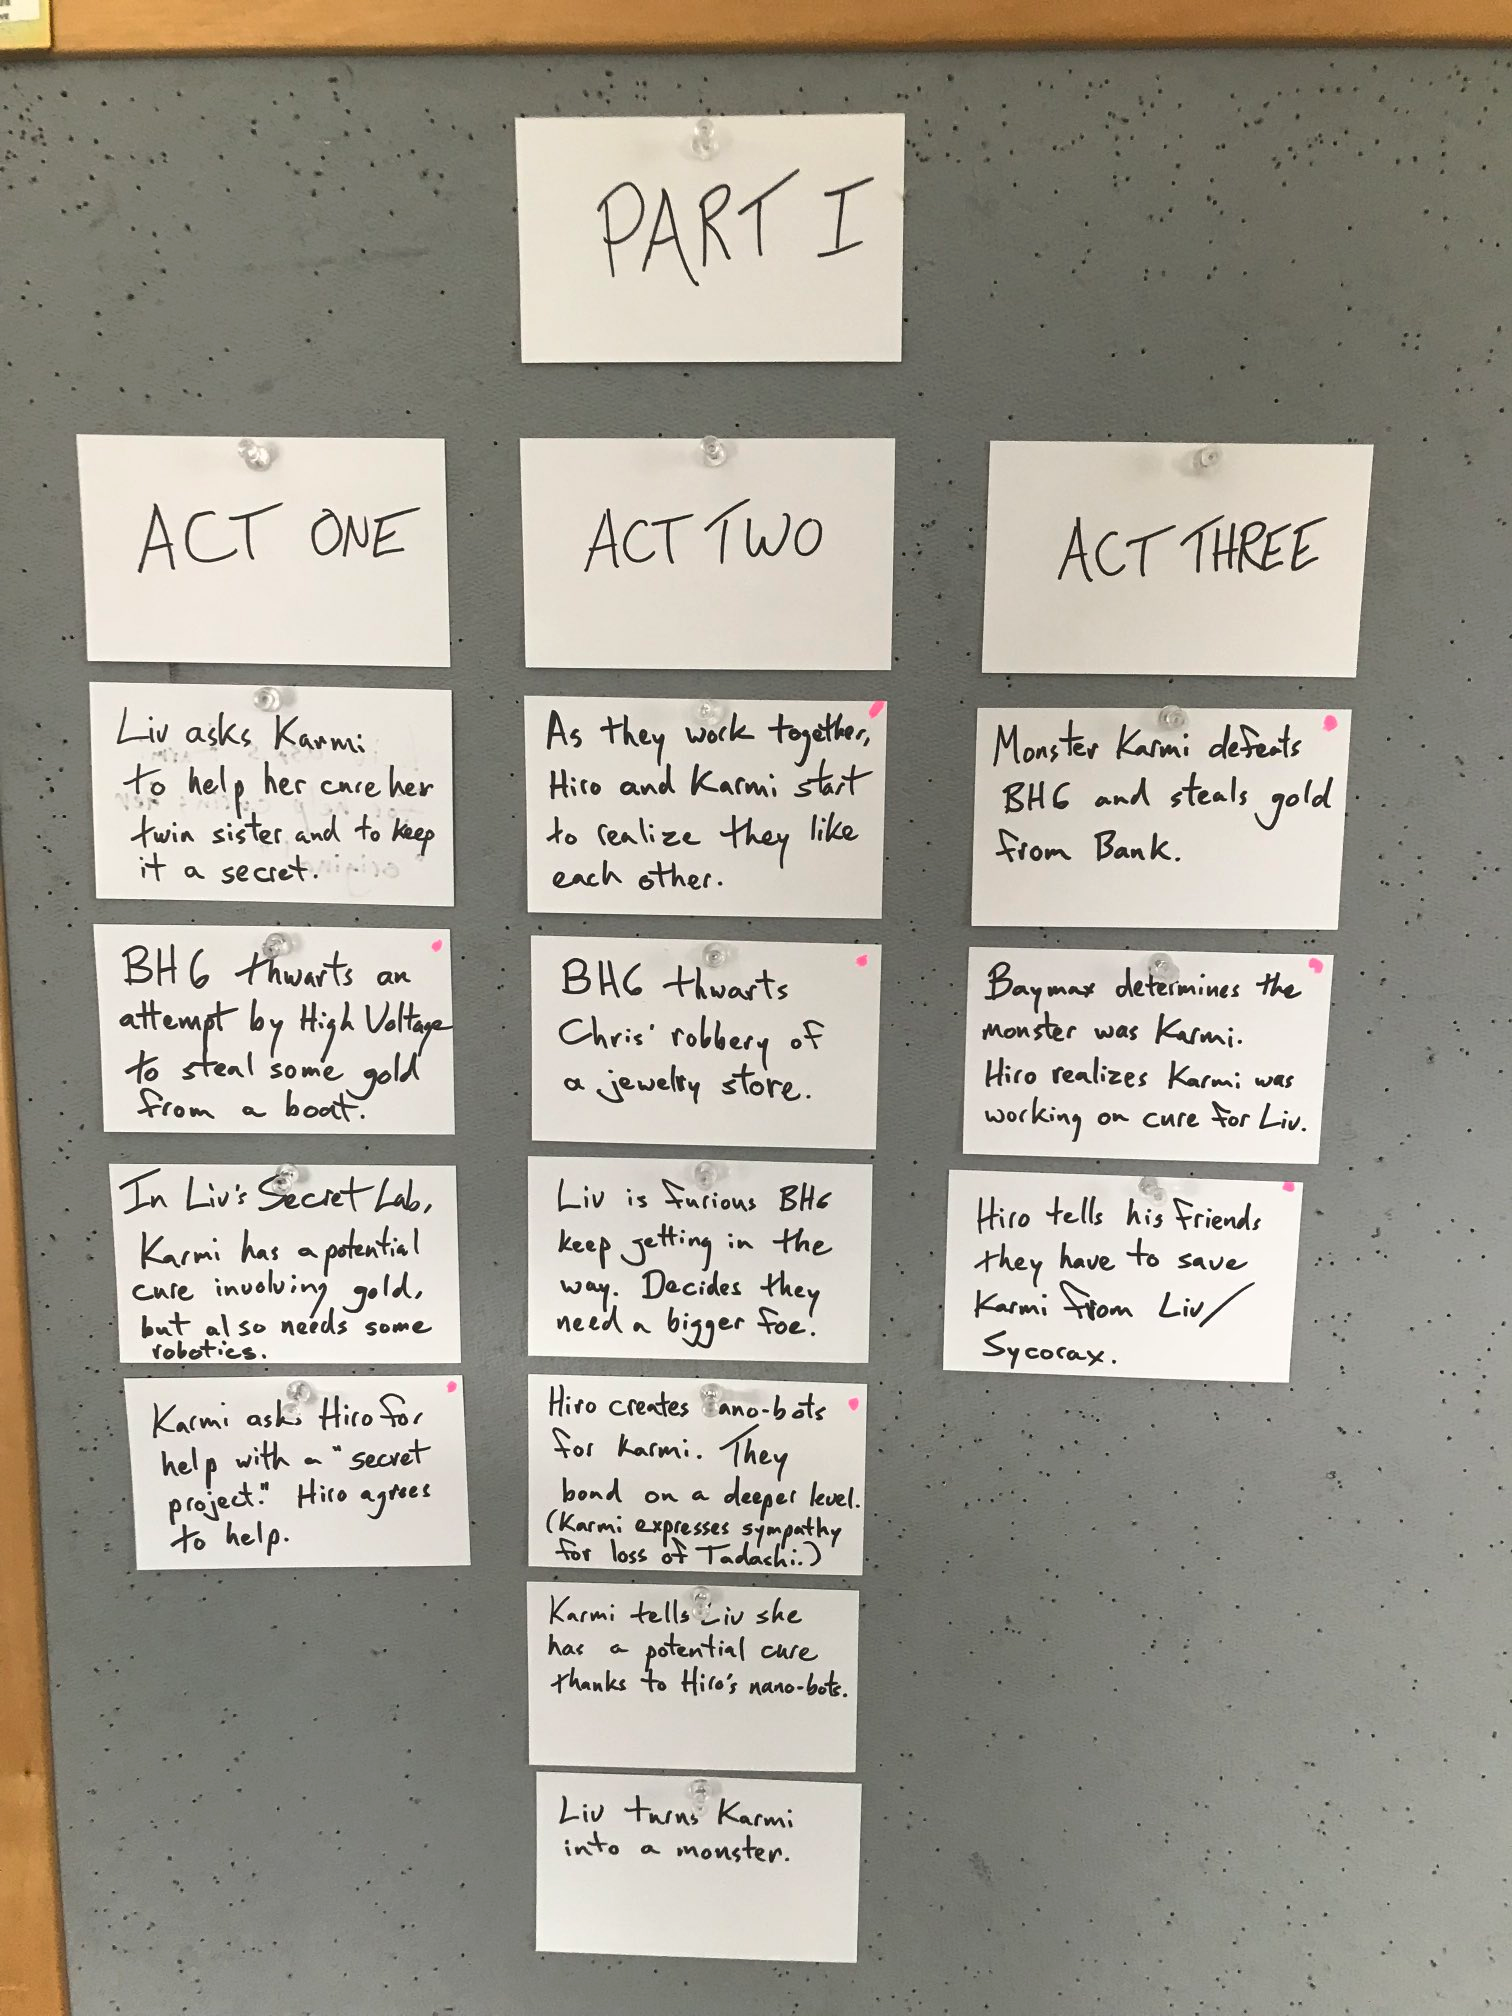 PART I
ACT ONE
Liv asks Karmi
to help her cure her
twin sister and to keep
it a secret.
BH6 thwarts an
attempt by High Voltage
to steal some gold
from a boat.
In Liv's Secret Lab,
Karmi has a potential
cure involving gold,
but also needs some
robotics.
Karmi asks Hiro for
help with a "secret
project." Hiro agrees
to help.
ACT TWO
As they work together,
Hiro and Karmi start
to realize they like
each other.
BH6 thwarts
Chris' robbery of
a jewelry store.
Liv is furious BH6
keep getting in the
way. Decides they
need a bigger foe.
Hiro creates nano-bots
for Karmi. They
bond on a deeper level.
(Karmi expresses sympathy
for loss of Tadashi.)
Karmi tells Liv she
has a potential cure
thanks to Hiro's nano-bots.
Liv turns Karmi
into a monster.
ACT THREE
Monster Karmi defeats
BH6 and steals gold
from Bank.
Baymax determines the
monster was Karmi.
Hiro realizes Karmi was
working on cure for Liv.
Hiro tells his friends
they have to save
Karmi from Liv/
Sycorax.